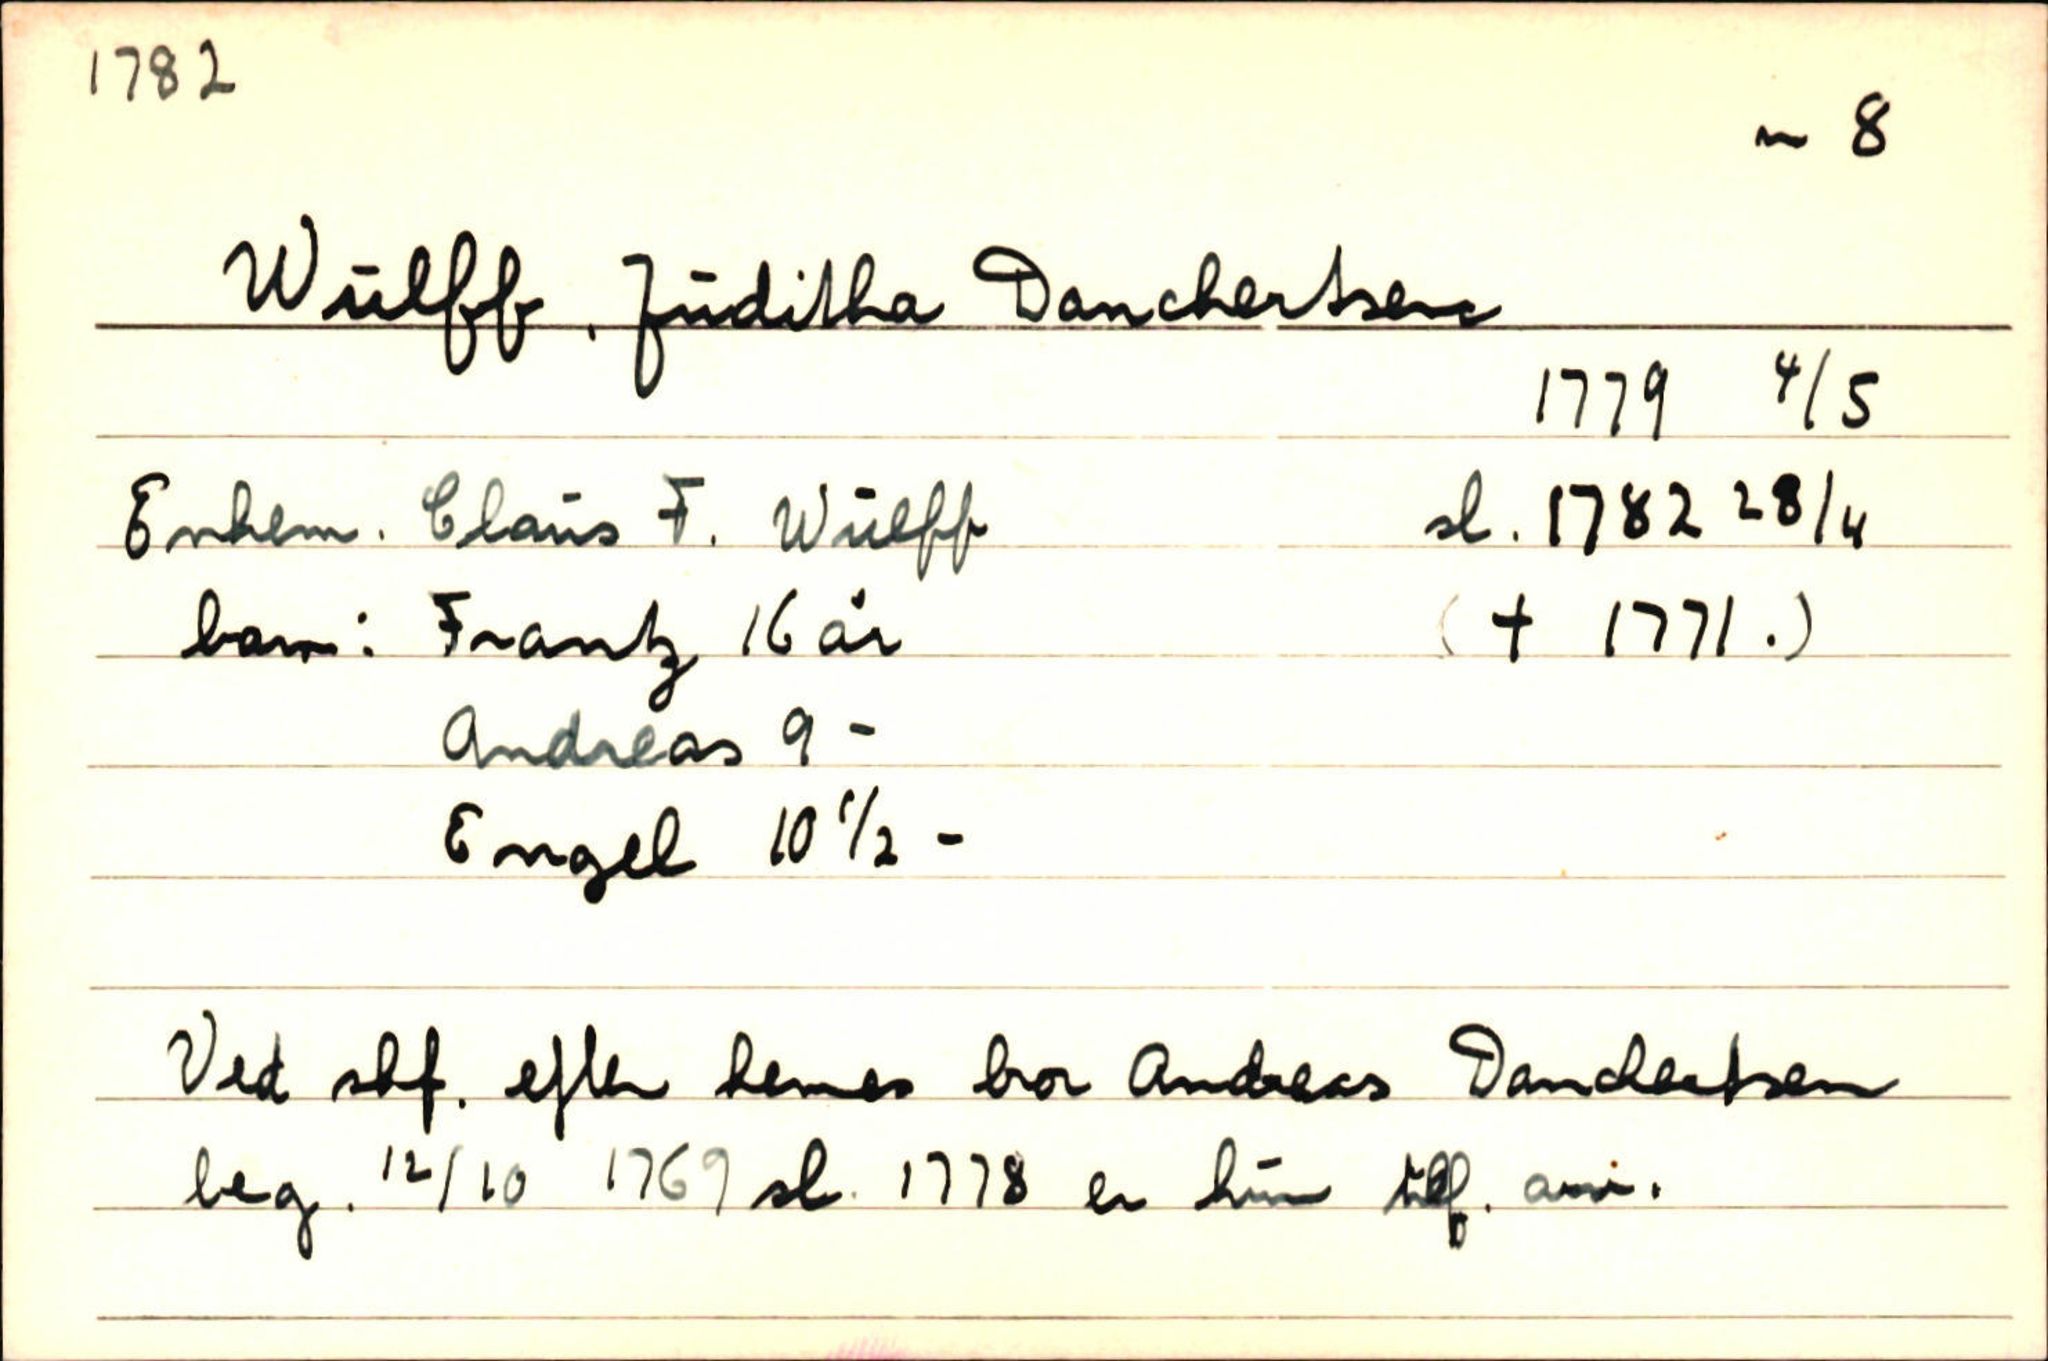 1782
~ 8
Wulff, Juditha Danchertsen
1779 4/5
Enkem. Claus F. Wulff sl. 1782 28/4
barn: Frantz 16 år († 1771.)
Andreas 9 -
Engel 10 1/2 -
Ved skf. efter hennes bror Andreas Danchertsen
beg. 12/10 1769 sl. 1778 er hun tilf. arv.